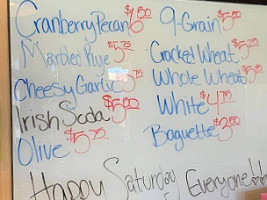 Cranberry Pecan $6.50
Marbled Rye $5.75
Cheesy Garlic $5.75
Irish Soda $5.00
Olive $5.75
9-Grain $5.00
Cracked Wheat $5.25
Whole Wheat $5.25
White $4.75
Baguette $3.00
Happy Saturday Everyone!